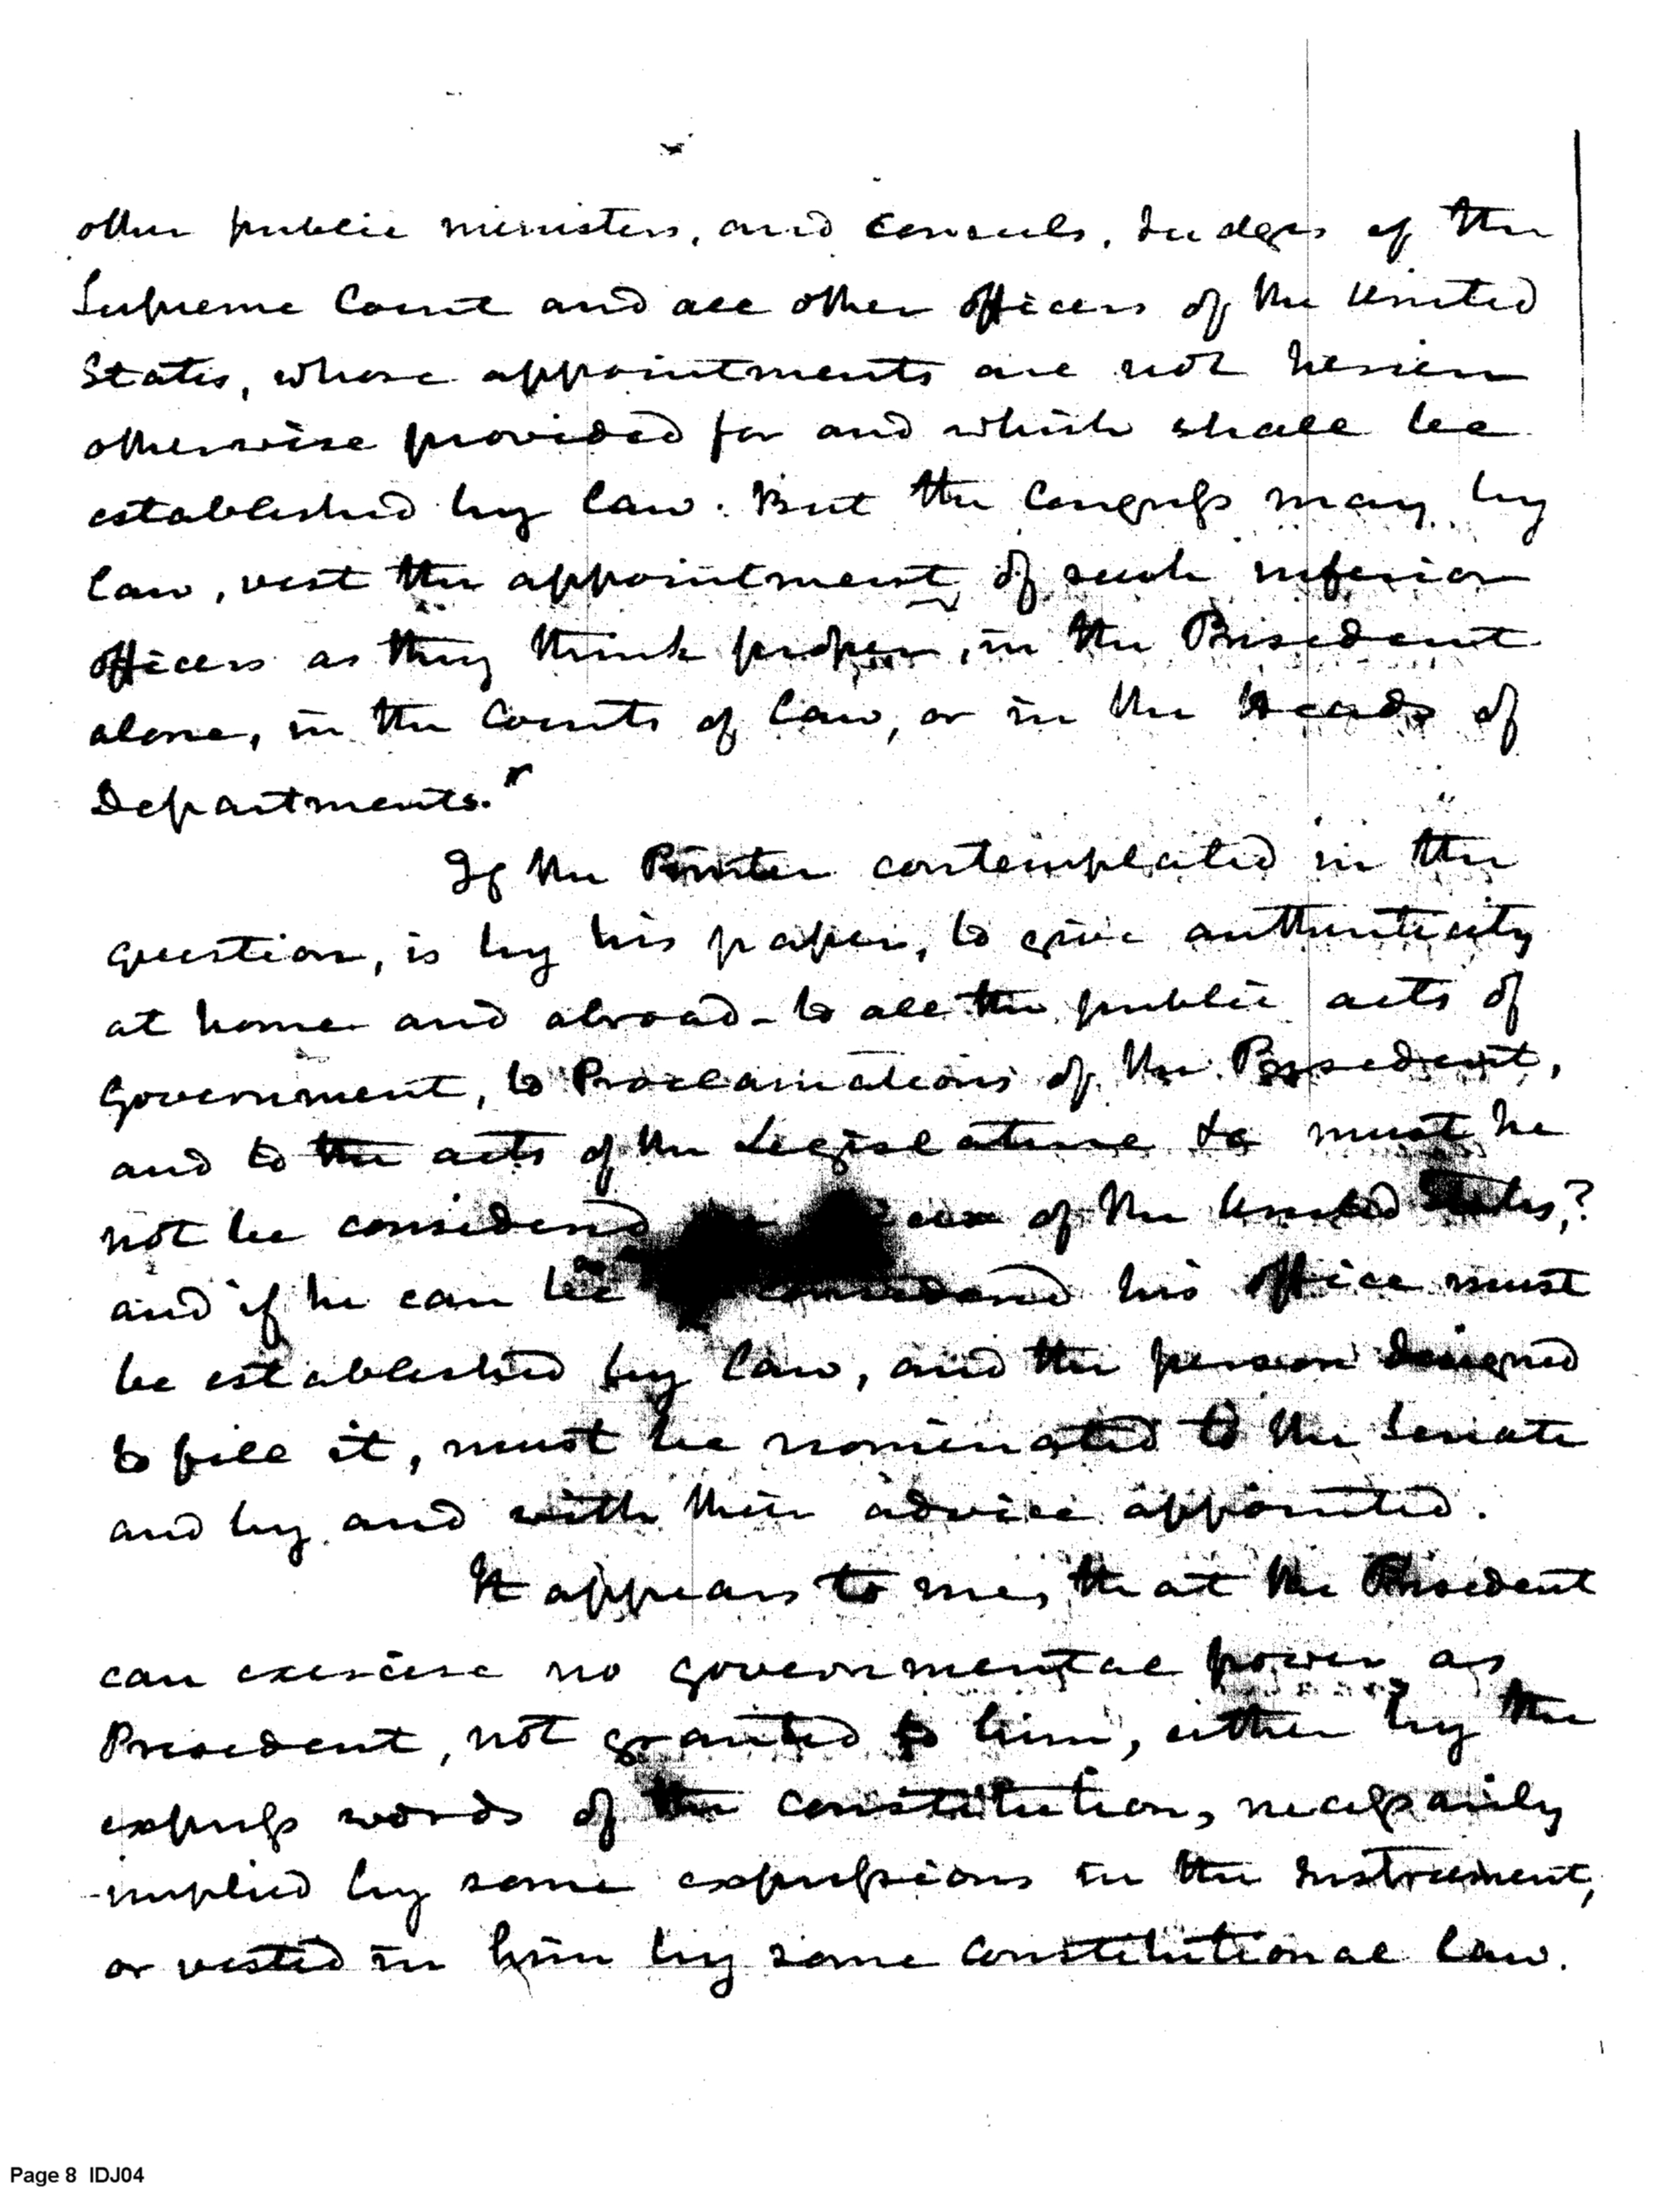 other public ministers, and consuls, Judges of the
Supreme Court and all other officers of the United
States, whose appointments are not herein
otherwise provided for and which shall be
established by law. But the Congress may by
law, vest the appointment of such inferior
officers as they think proper, in the President
alone, in the Courts of law, or in the Heads of
Departments."
If the Printer contemplated in the
question, is by his paper, to give authenticity
at home and abroad - to all the public acts of
Government, to Proclamations of the President,
and to the acts of the Legislature &c must he
not be considered of the United States,?
and if he can be considered his office must
be established by law, and the person designed
to fill it, must be nominated to the Senate
and by and with their advice appointed.
It appears to me, that the President
can exercise no governmental power as
President, not granted to him, either by the
express words of the constitution, necessarily
implied by some expressions in the Instrument,
or vested in him by some constitutional law.
Page 8 IDJ04